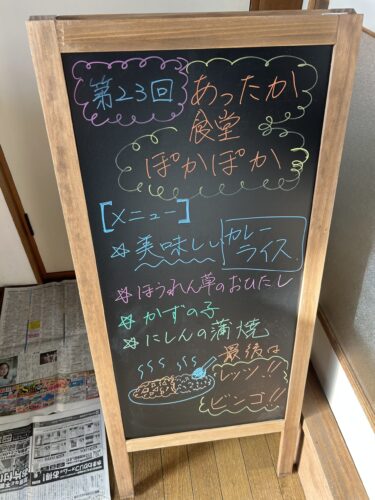 第23回 あったか
食堂
ぽかぽか
[メニュー]
☆美味しいカレー
ライス
☆ほうれん草のおひたし
☆かずの子
☆にしんの蒲焼
最後は
レッツ!!
ビンゴ!!